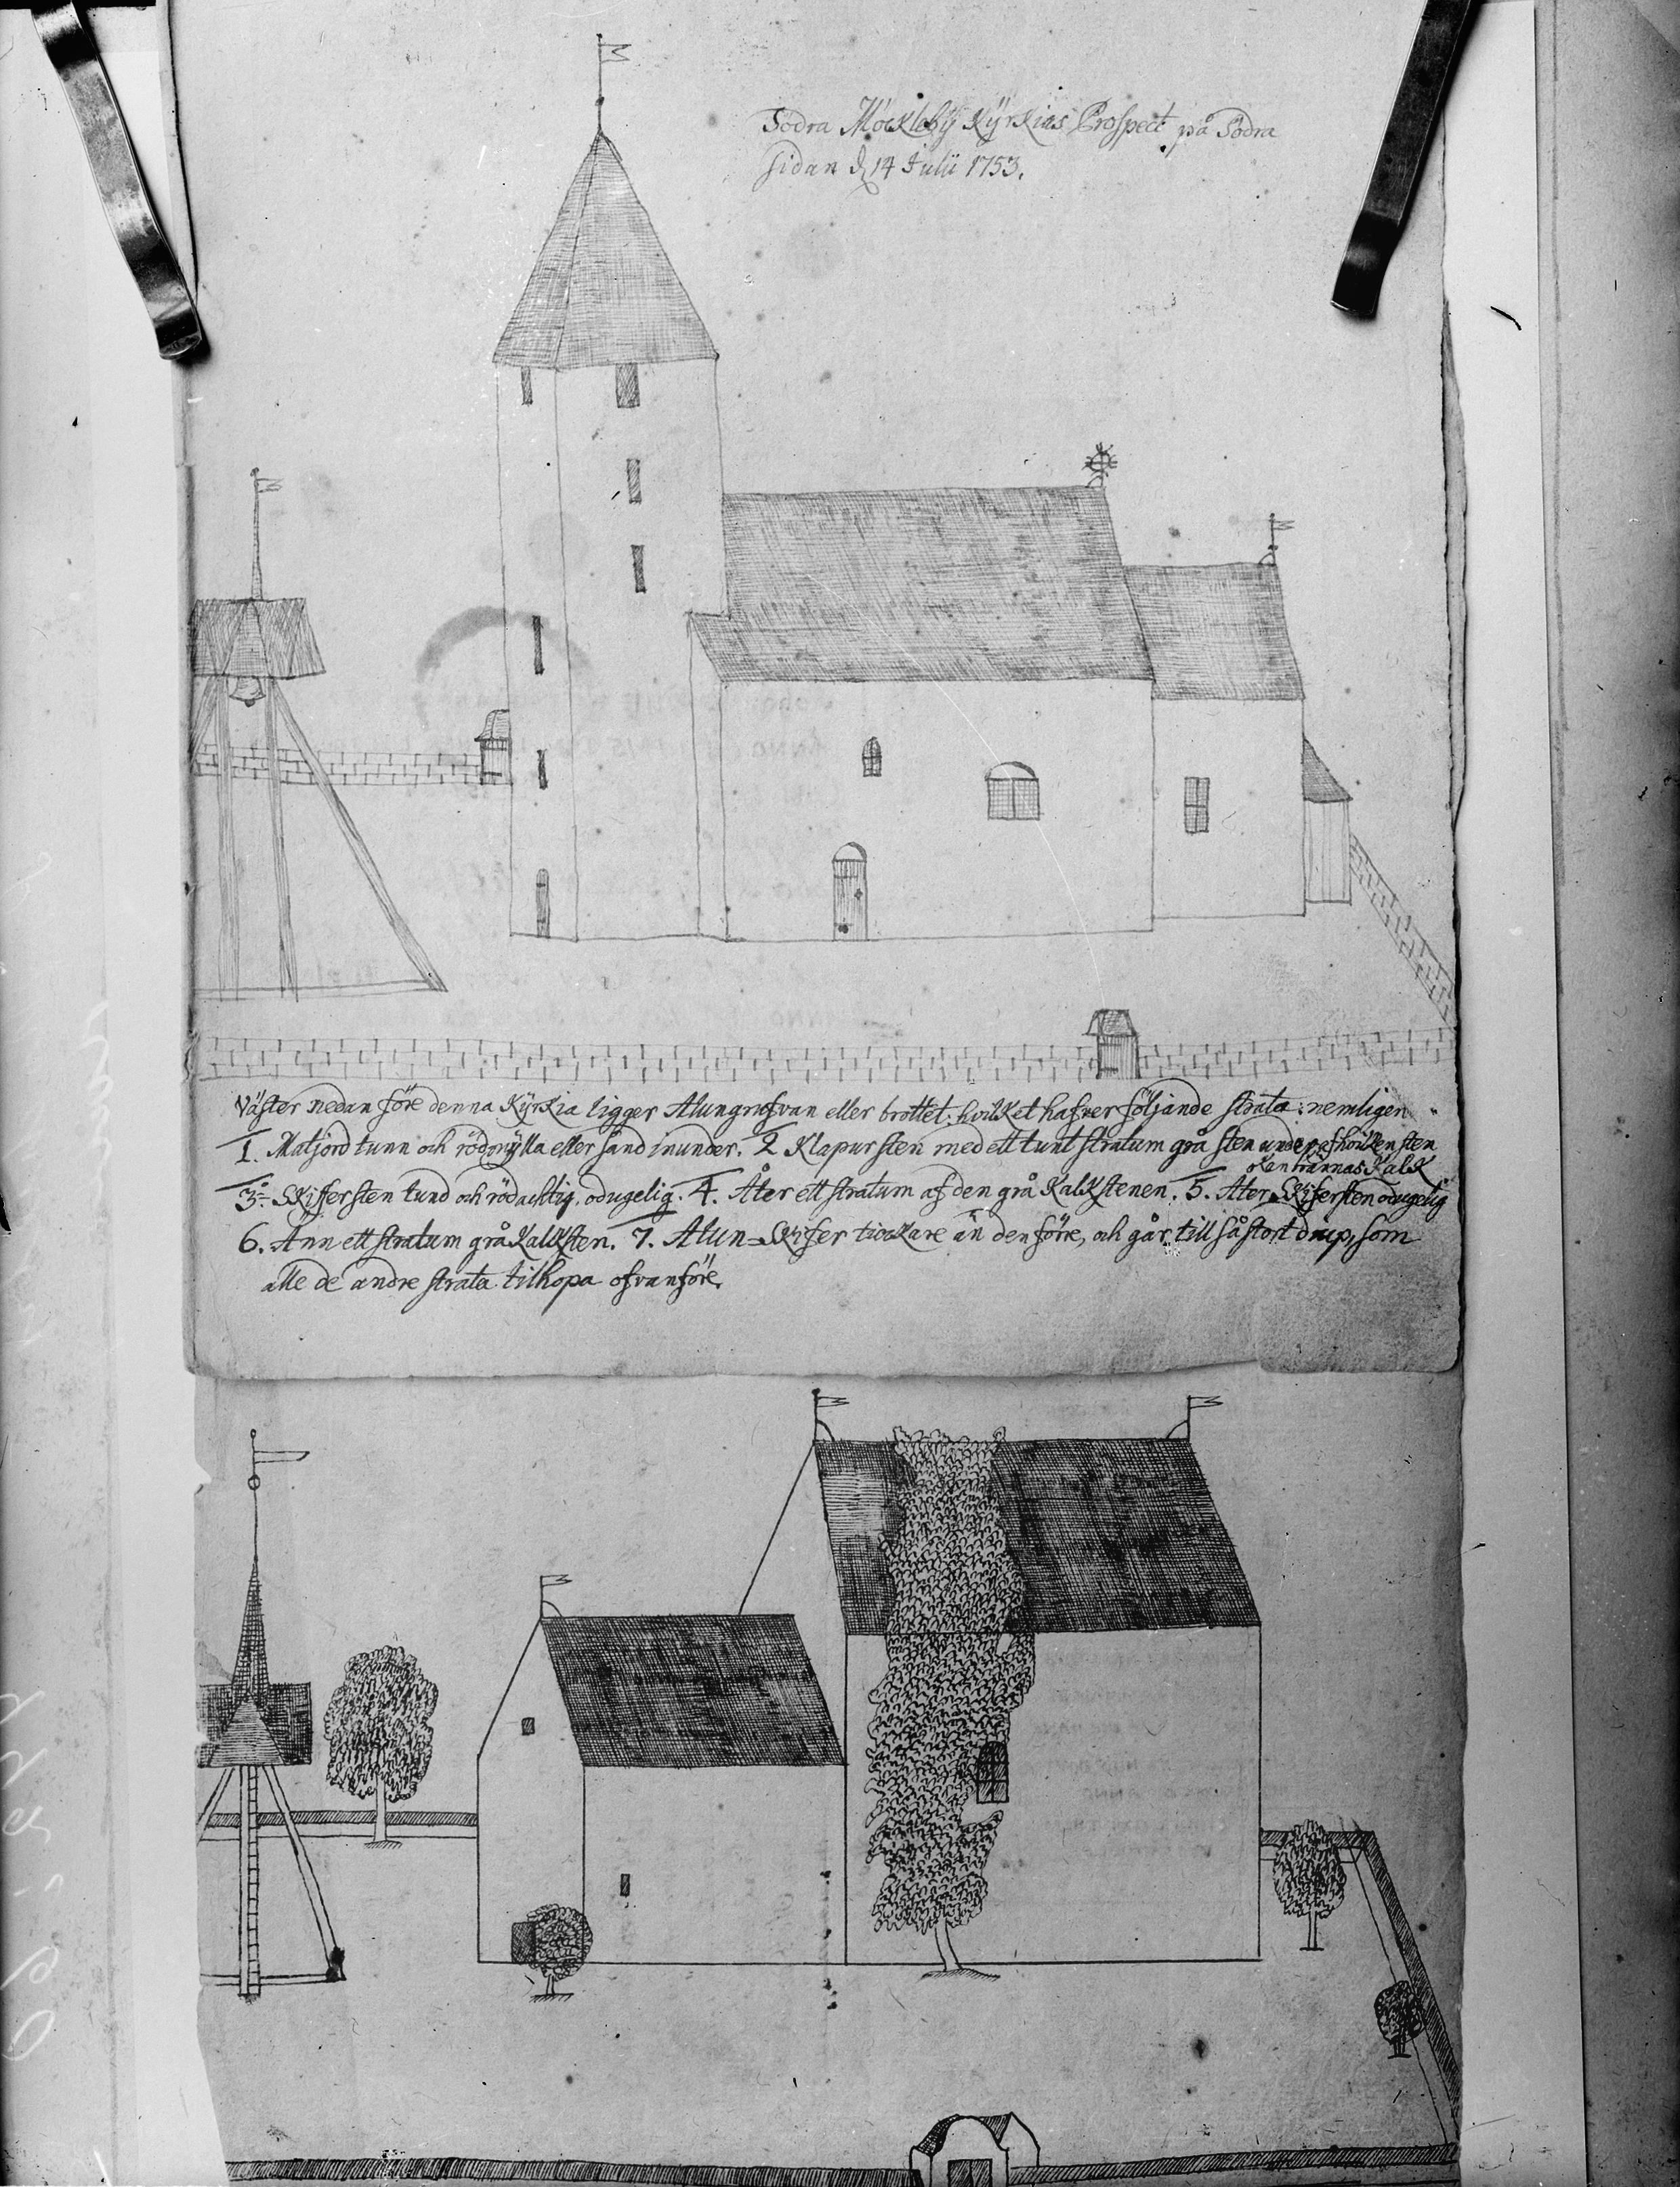 Södra Möckleby Kÿrkias Prospect på Södra
sidan d 14 Julii 1753.
Väster nedan före denna Kÿrkia ligger Alungrufvan eller brottet, hvilket hafver följande strata: nemligen
1. Matjord tunn och rödmylla eller sand inunder. 2 Klapursten med ett tunt stratum grå sten under, af hvilken sten
brännas Kalk
3:o Skiffersten tund och rödachtig, odugelig. 4. Åter ett stratum af den grå Kalkstenen. 5. Åter Skifersten odugelig
6. Ann ett stratum grå Kalksten. 7. Alun-Skifer tiockare än den förre, och går till så stort diup, som
alle de andre strata tilhopa ofvanföre.